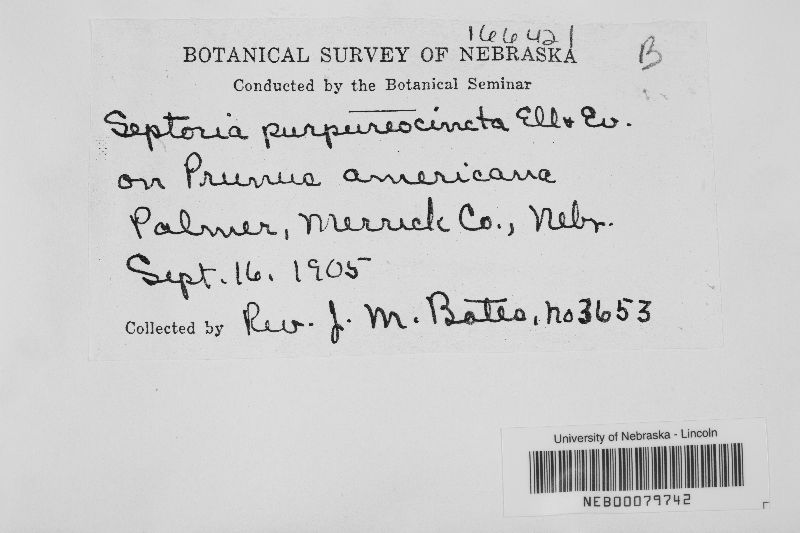 166421
BOTANICAL SURVEY OF NEBRASKA
B
Conducted by the Botanical Seminar
Septoria purpureocincta Ell & Ev.
on Prunus americana
Palmer, Merrick Co., Nebr.
Sept. 16. 1905
Collected by Rev. J. M. Bates, no 3653
University of Nebraska - Lincoln
NEB00079742